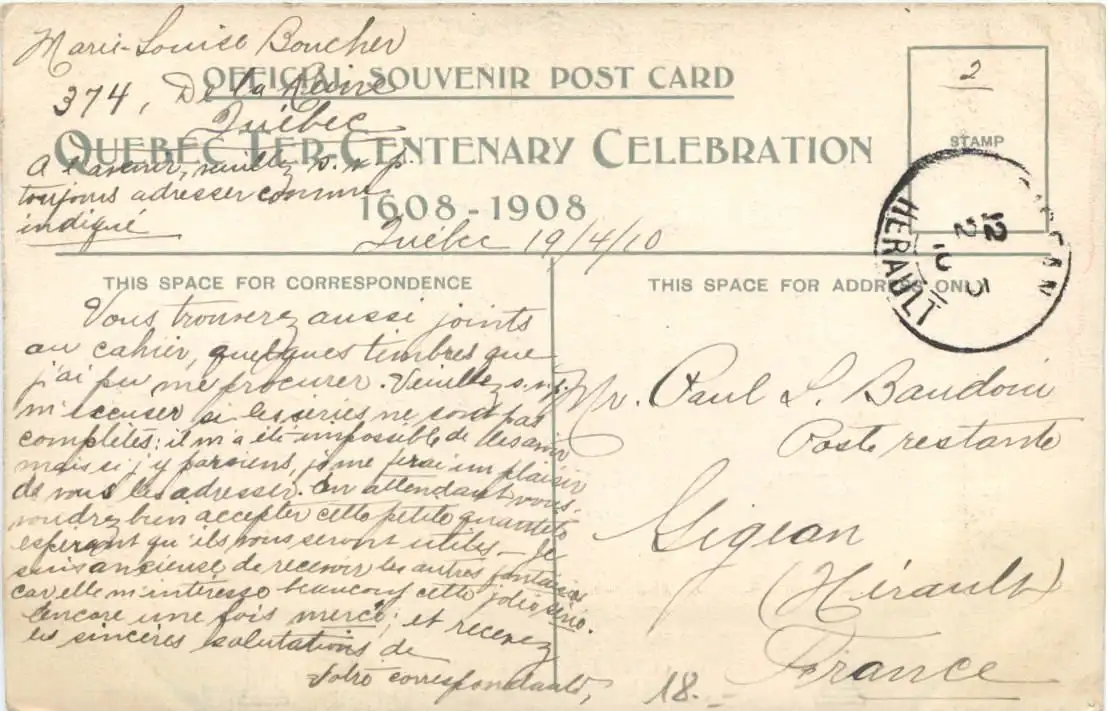 Marie-Louise Boucher
OFFICIAL SOUVENIR POST CARD
374, De la Reine
Québec
QUEBEC TER-CENTENARY CELEBRATION
A l'avenir, veuillez s.v.p.
toujours adresser comme
indiqué
1608-1908
Québec 19/4/10
2
STAMP
HERAULT
12
THIS SPACE FOR CORRESPONDENCE
Vous trouverez aussi joints
au cahier, quelques timbres que
j'ai pu me procurer. Veuillez s.v.p.
m'excuser si les séries ne sont pas
complètes: il m'a été impossible de les avoir
mais si j'y parviens, je me ferai un plaisir
de vous les adresser. En attendant vous
voudrez bien accepter cette petite quantité
espérant qu'ils vous seront utiles. - Je
suis anxieuse de recevoir les autres fontaines
car elle m'intéresse beaucoup cette jolie série.
Encore une fois merci; et recevez
les sincères salutations de
Votre correspondante,
THIS SPACE FOR ADDRESS ONLY
Mr. Paul L. Baudoin
Poste restante
Gigean
(Hérault)
France
18.-